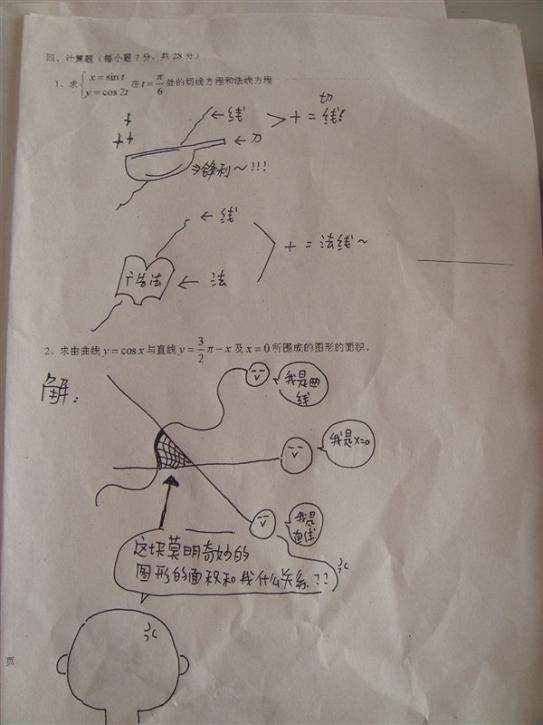 四、计算题（每小题7分，共28分）
1、求{x = sin t
y = cos 2t 在 t = π/6 处的切线方程和法线方程
← 线
+ = 切线!
← 刀
锋利~!!!
← 线
+ = 法线~
广告法
← 法
2、求由曲线 y = cos x 与直线 y = 3/2 π - x 及 x = 0 所围成的图形的面积。
解:
我是曲
线
我是x=0
我是
直线
这块莫明奇妙的
图形的面积和我什么关系??
页